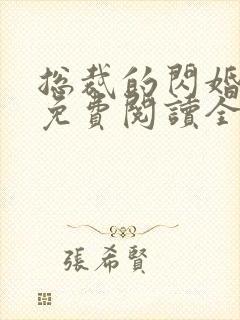 总裁的閃婚
免費閱讀全
張希賢